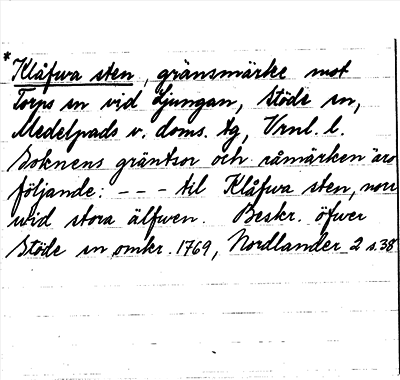 * Klåfwa sten, gränsmärke mot
Torps sn vid Ljungan, Stöde sn,
Medelpads v. doms. tg, Vrnl. l.
Soknens gräntsor och råmärken äro
följande: - - - til Klåfwa sten, norr
wid stora älfwen. Beskr. öfwer
Stöde sn omkr. 1769, Nordlander 2 s. 38